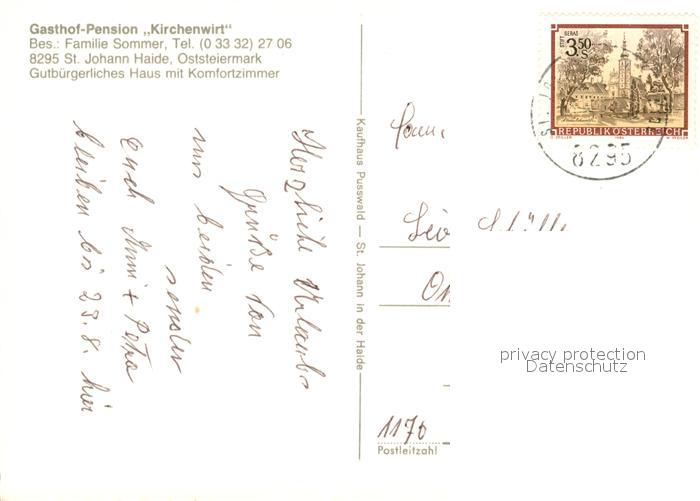 Gasthof-Pension „Kirchenwirt"
Bes.: Familie Sommer, Tel. (0 33 32) 27 06
8295 St. Johann Haide, Oststeiermark
Gutbürgerliches Haus mit Komfortzimmer
Herzliche Urlaubs
Grüße von
uns beiden
senden
Euch Mimi + Petra
bleiben bis 23.8. hier
Kaufhaus Pusswald — St. Johann in der Haide
STIFT GERAS
3.50 S
REPUBLIK ÖSTERREICH
8295
Fam.
1170
Postleitzahl
privacy protection
Datenschutz